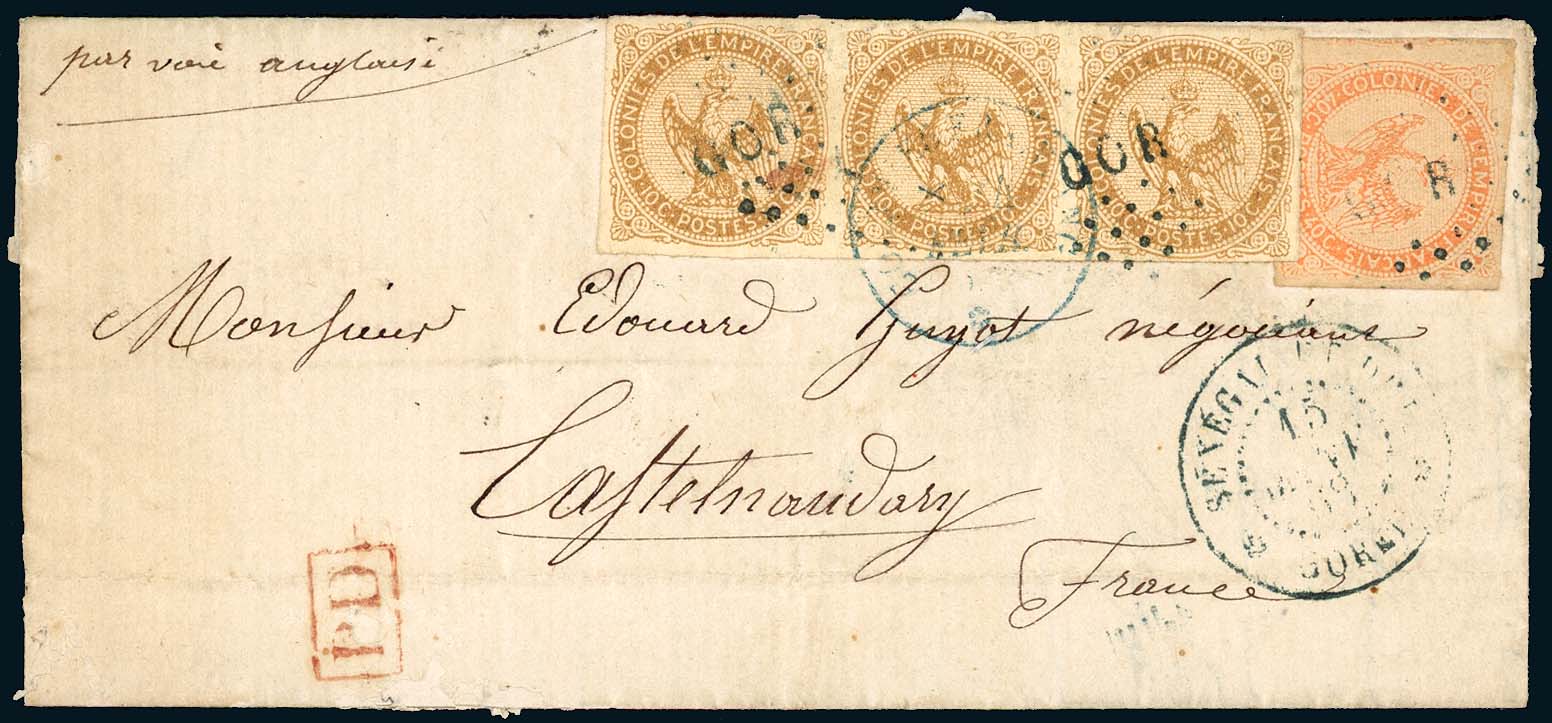 par voie anglaise
COLONIES DE L'EMPIRE FRANÇAIS
10 C. POSTES. 10 C.
GOR
COLONIES DE L'EMPIRE FRANÇAIS
10 C. POSTES. 10 C.
COLONIES DE L'EMPIRE FRANÇAIS
10 C. POSTES. 10 C.
GOR
COLONIES DE L'EMPIRE FRANÇAIS
40 C.
R
Monsieur Edouard Guyot négociant
Castelnaudary
France
SÉNÉGAL ET DÉP
15
GORÉE
P.D.